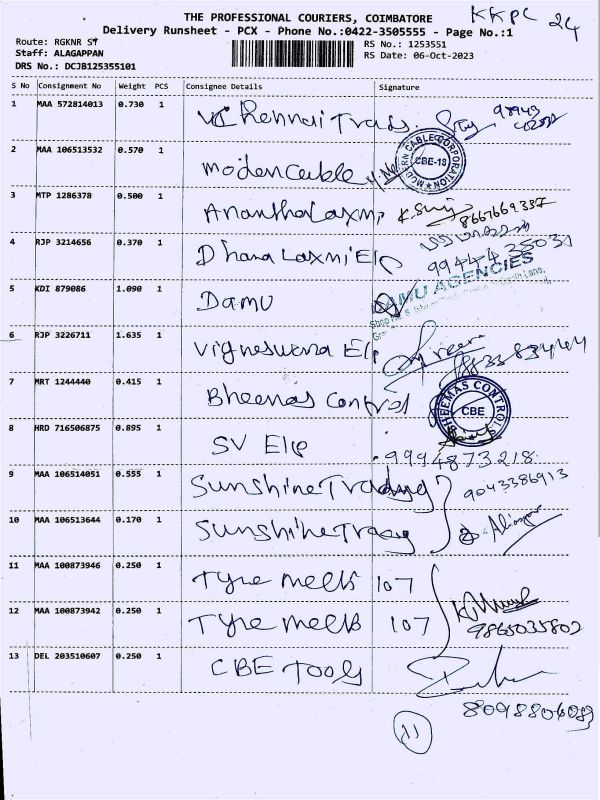 THE PROFESSIONAL COURIERS, COIMBATORE KKPC 24
Delivery Runsheet - PCX - Phone No.:0422-3505555 - Page No.:1
Route: RGKNR ST RS No.: 1253551
Staff: ALAGAPPAN RS Date: 06-Oct-2023
DRS No.: DCJB125355101
S No Consignment No Weight PCS Consignee Details Signature
1 MAA 572814013 0.730 1 Chennai Trass
2 MAA 106513532 0.570 1 Moden Cable MODERN CABLE CORPORATION CBE-18
3 MTP 1286378 0.500 1 Anantha Laxmi
4 RJP 3214656 0.370 1 Dhana Laxmi Elp
5 KDI 879086 1.090 1 Damu DAMU AGENCIES
6 RJP 3226711 1.635 1 Vigneswara Elp
7 MRT 1244440 0.415 1 Bheemas Control BHEEMAS CONTROLS CBE
8 HRD 716506875 0.895 1 SV Elp 9994873218
9 MAA 106514051 0.555 1 Sunshine Trading 9043386913
10 MAA 106513644 0.170 1 Sunshine
11 MAA 100873946 0.250 1 Tyre melts 107
12 MAA 100873942 0.250 1 Tyre melts 107 9865035802
13 DEL 203510607 0.250 1 CBE Tools
11